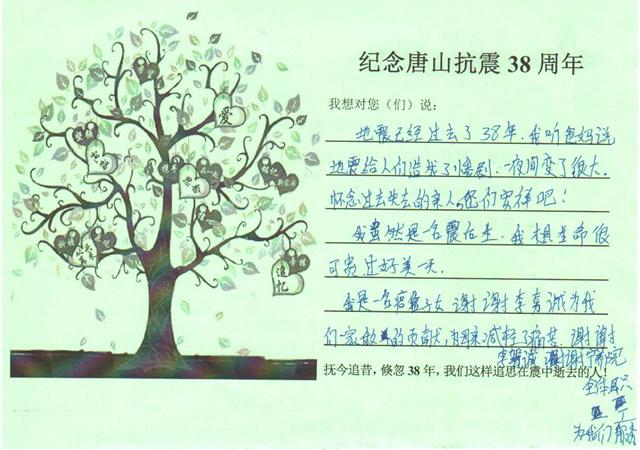 纪念唐山抗震 38 周年
爱
追忆
我想对您（们）说：
地震已经过去了38年.我听爸妈说
地震给人们造成了悲剧.一夜间变了很大.
怀念过去失去的亲人,您们安祥吧!
我虽然是一名震后生.我想生命很
可贵过好美一天.
我是一名截瘫子女 谢谢李嘉诚为我
们一家做的贡献,为母亲减轻了痛苦.谢谢
李嘉诚 谢谢宁养院
抚今追昔，倏忽 38 年，我们这样追思在震中逝去的人！
全体职
工
为我们服务